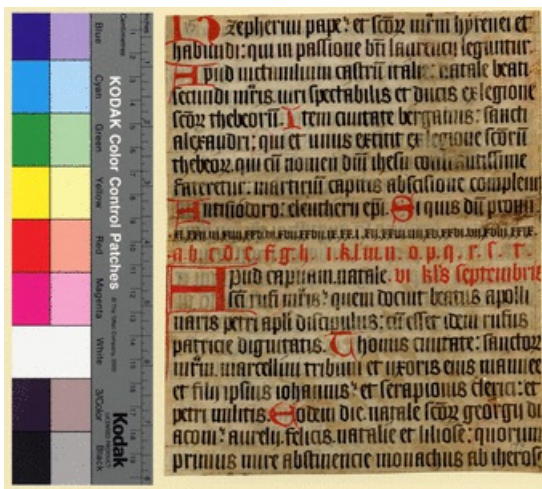 Blue
Cyan
Green
Yellow
Red
Magenta
White
3/Color
Black
Centimetres
KODAK Color Control Patches
Kodak
LICENSED PRODUCT
zepherini pape ꝛ et scõꝝ mr̃m hyrenei et
habundi : qui in passione bti laurencii leguntur.
Apud victimilium castrũ italie : natale beati
secundi mr̃is. viri spectabilis et ducis ex legione
scõꝝ thebeoꝝ. Item ciuitate bergamis : sancti
alexandri : qui et unus extitit ex legione scõrũ
thebeoꝝ. qui cũ nomen dñi ihesu
fateretur : martiriũ capitis abscisione compleuit
Antisiodoro : eleutherii ep̃i. Si quis
a. b. c. d. e. f. g. h. i. k. l. m. n. o. p. q. r. s. t.
Apud capuam. natale. vi kl̃s septembris
sc̃i rufi mr̃is : quem docuit beatus apolli
naris petri apl̃i discipulus : cũ esset idem rufus
patricie dignitatis. Thomis ciuitate : sanctoꝝ
mr̃m. marcellini tribuni et uxoris eius mannee
et filii ipsius iohannis : et serapionis clerici : et
petri militis. Eodem die. natale scõꝝ georgii di
acoñ : aurelii. felicis. natalie et liliose : quorum
primus mire abstinencie monachus ab iheroso